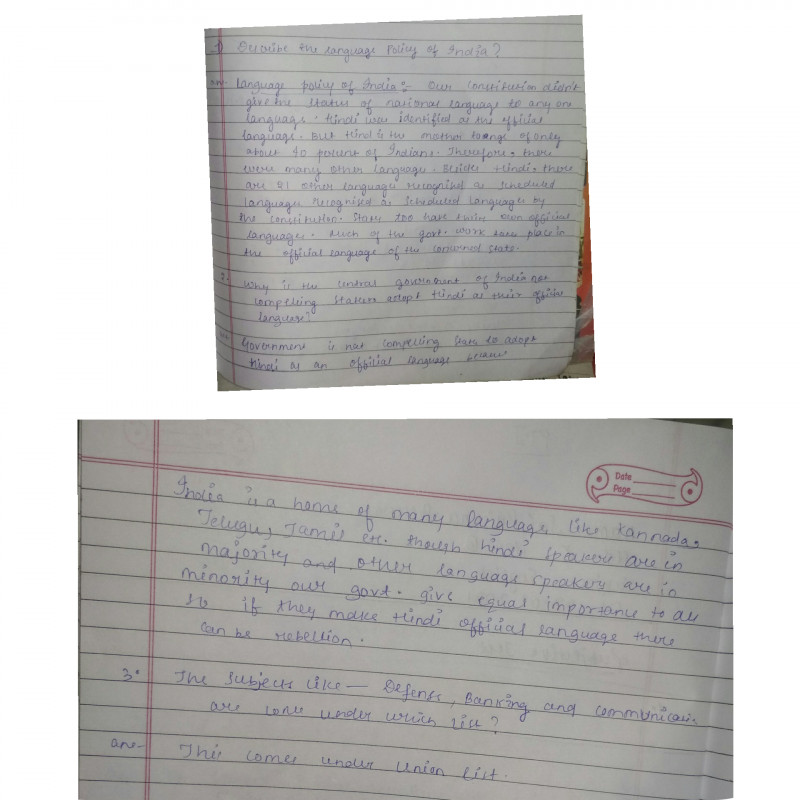 1) Describe the language Policy of India?
ans- Language policy of India :- Our constitution didn't
give the status of national language to any one
language. Hindi was identified as the official
language. But Hindi is the mother tounge of only
about 40 percent of Indians. Therefore, there
were many other language. Besides Hindi, there
are 21 other language recognised as scheduled
language recognised as scheduled language by
the constitution. State too have their own official
language. Much of the govt. work takes place in
the official language of the concerned state.
2- Why is the central government of India not
compelling states adopt Hindi as their official
language?
Government is not compelling state to adopt
Hindi as an official language because
Date
Page
India is a home of many language, like Kannada,
Telugu, Tamil etc. though hindi speakers are in
majority and other language speakers are in
minority our govt. give equal importance to all
So if they make Hindi official language there
can be rebellion.
3. The subjects like — Defense, Banking and communicati-
are come under which list?
ans- This comes under Union list.